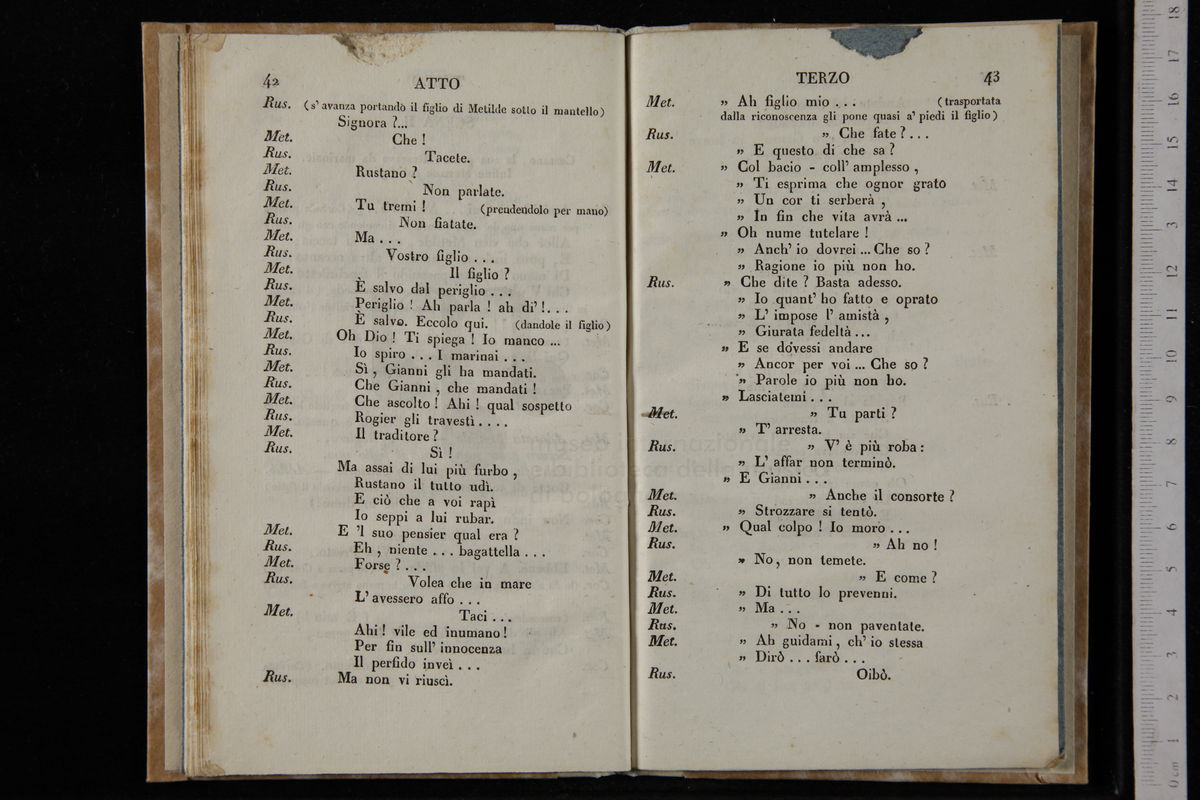 42 ATTO
Rus. (s' avanza portandò il figlio di Metilde sotto il mantello)
Signora ?...
Met. Che !
Rus. Tacete.
Met. Rustano ?
Rus. Non parlate.
Met. Tu tremi ! (prendendolo per mano)
Rus. Non fiatate.
Met. Ma . . .
Rus. Vostro figlio . . .
Met. Il figlio ?
Rus. È salvo dal periglio . . .
Met. Periglio ! Ah parla ! ah di' !. . .
Rus. È salvo. Eccolo qui. (dandole il figlio)
Met. Oh Dio ! Ti spiega ! Io manco ...
Rus. Io spiro . . . I marinai . . .
Met. Sì , Gianni gli ha mandati.
Rus. Che Gianni , che mandati !
Met. Che ascolto ! Ahi ! qual sospetto
Rus. Rogier gli travestì . . . .
Met. Il traditore ?
Rus. Sì !
Ma assai di lui più furbo ,
Rustano il tutto udì.
E ciò che a voi rapì
Io seppi a lui rubar.
Met. E 'l suo pensier qual era ?
Rus. Eh , niente . . . bagattella . . .
Met. Forse ? . . .
Rus. Volea che in mare
L' avessero affo . . .
Met. Taci . . .
Ahi ! vile ed inumano !
Per fin sull' innocenza
Il perfido inveì . . .
Rus. Ma non vi riuscì.
TERZO 43
Met. » Ah figlio mio . . . (trasportata
dalla riconoscenza gli pone quasi a' piedi il figlio)
Rus. » Che fate ? . . .
» E questo di che sa ?
Met. » Col bacio - coll' amplesso ,
» Ti esprima che ognor grato
» Un cor ti serberà ,
» In fin che vita avrà ...
» Oh nume tutelare !
» Anch' io dovrei ... Che so ?
» Ragione io più non ho.
Rus. » Che dite ? Basta adesso.
» Io quant' ho fatto e oprato
» L' impose l' amistà ,
» Giurata fedeltà ...
» E se dovessi andare
» Ancor per voi ... Che so ?
» Parole io più non ho.
» Lasciatemi . . .
Met. » Tu parti ?
» T' arresta.
Rus. » V' è più roba :
» L' affar non terminò.
» E Gianni . . .
Met. » Anche il consorte ?
Rus. » Strozzare si tentò.
Met. » Qual colpo ! Io moro . . .
Rus. » Ah no !
» No, non temete.
Met. » E come ?
Rus. » Di tutto lo prevenni.
Met. » Ma . . .
Rus. » No - non paventate.
Met. » Ah guidami, ch' io stessa
» Dirò . . . farò . . .
Rus. Oibò.